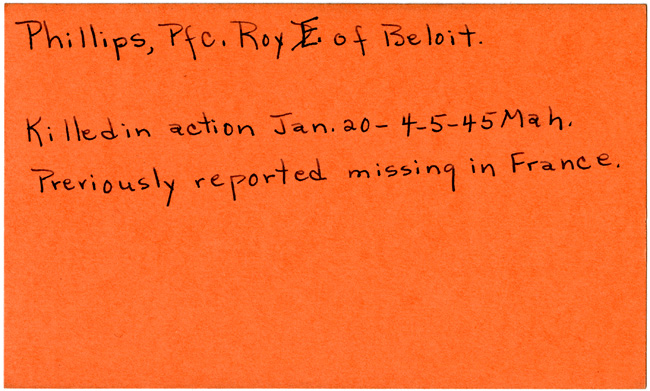 Phillips, Pfc. Roy E. of Beloit.
Killed in action Jan. 20 - 4-5-45 Mah.
Previously reported missing in France.